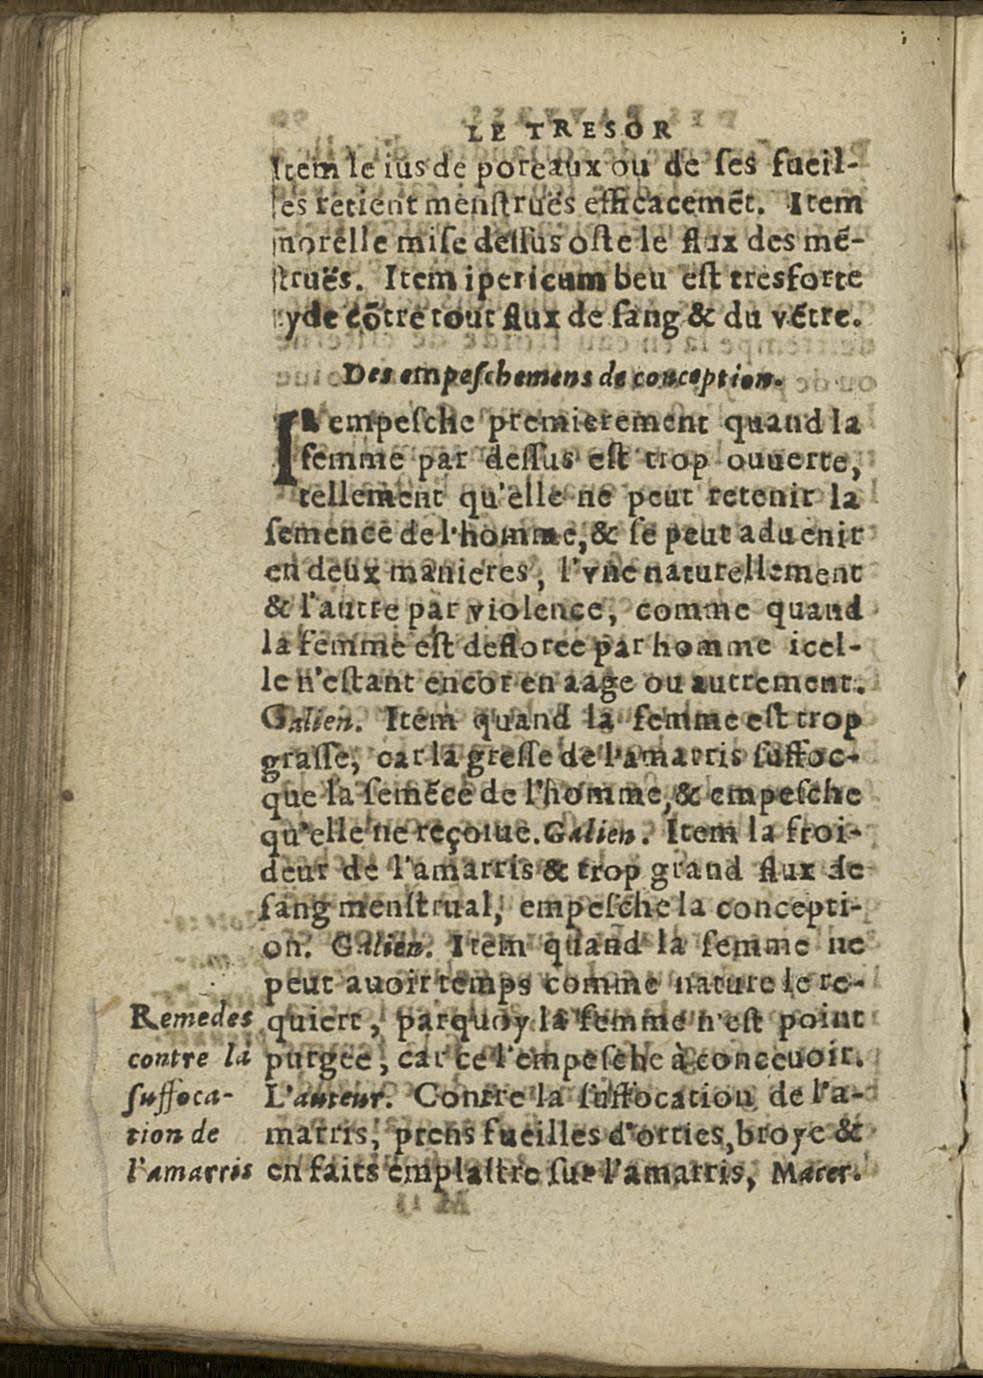 LE TRESOR
Item le ius de poreaux ou de ſes fueil-
les retient menſtrues efficacemẽt. Item
morelle miſe deſſus oſte le flux des mẽ-
ſtrues. Item ipericum beu eſt tresforte
ayde cõtre tout flux de ſang & du vẽtre.
Des empeſchemens de conception.
IL empeſche premierement quand la
femme par deſſus eſt trop ouuerte,
tellement qu'elle ne peut retenir la
ſemence de l'homme, & ſe peut aduenir
en deux manieres, l'vne naturellement
& l'autre par violence, comme quand
la femme eſt defloree par homme icel-
le n'eſtant encor en aage ou autrement.
Galien. Item quand la femme eſt trop
graſſe, car la greſſe de l'amarris ſuffoc-
que la ſemẽce de l'homme, & empeſche
qu'elle ne reçoiue. Galien. Item la froi-
deur de l'amarris & trop grand flux de
ſang menſtrual, empeſche la concepti-
on. Galien. Item quand la femme ne
peut auoir temps comme nature le re-
quiert, parquoy la femme n'eſt point
purgee, car ce l'empeſche à conceuoir.
L'auteur. Contre la ſuffocation de l'a-
marris, prens fueilles d'orties, broye &
en faits emplaſtre ſur l'amarris, Macer.
Remedes
contre la
ſuffoca-
tion de
l'amarris